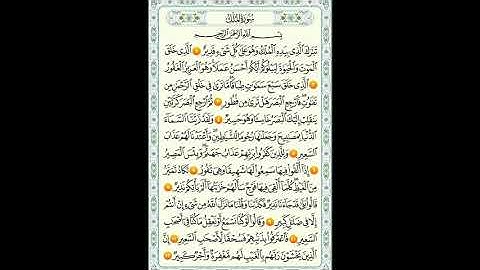 سُورَةُ الْمُلْكِ
بِسْمِ اللَّهِ الرَّحْمَٰنِ الرَّحِيمِ
تَبَارَكَ الَّذِي بِيَدِهِ الْمُلْكُ وَهُوَ عَلَىٰ كُلِّ شَيْءٍ قَدِيرٌ ١ الَّذِي خَلَقَ
الْمَوْتَ وَالْحَيَاةَ لِيَبْلُوَكُمْ أَيُّكُمْ أَحْسَنُ عَمَلًا وَهُوَ الْعَزِيزُ الْغَفُورُ
٢ الَّذِي خَلَقَ سَبْعَ سَمَاوَاتٍ طِبَاقًا مَا تَرَىٰ فِي خَلْقِ الرَّحْمَٰنِ مِنْ
تَفَاوُتٍ فَارْجِعِ الْبَصَرَ هَلْ تَرَىٰ مِنْ فُطُورٍ ٣ ثُمَّ ارْجِعِ الْبَصَرَ كَرَّتَيْنِ
يَنْقَلِبْ إِلَيْكَ الْبَصَرُ خَاسِئًا وَهُوَ حَسِيرٌ ٤ وَلَقَدْ زَيَّنَّا السَّمَاءَ
الدُّنْيَا بِمَصَابِيحَ وَجَعَلْنَاهَا رُجُومًا لِلشَّيَاطِينِ وَأَعْتَدْنَا لَهُمْ عَذَابَ
السَّعِيرِ ٥ وَلِلَّذِينَ كَفَرُوا بِرَبِّهِمْ عَذَابُ جَهَنَّمَ وَبِئْسَ الْمَصِيرُ
٦ إِذَا أُلْقُوا فِيهَا سَمِعُوا لَهَا شَهِيقًا وَهِيَ تَفُورُ ٧ تَكَادُ تَمَيَّزُ
مِنَ الْغَيْظِ كُلَّمَا أُلْقِيَ فِيهَا فَوْجٌ سَأَلَهُمْ خَزَنَتُهَا أَلَمْ يَأْتِكُمْ نَذِيرٌ ٨
قَالُوا بَلَىٰ قَدْ جَاءَنَا نَذِيرٌ فَكَذَّبْنَا وَقُلْنَا مَا نَزَّلَ اللَّهُ مِنْ شَيْءٍ إِنْ أَنْتُمْ
إِلَّا فِي ضَلَالٍ كَبِيرٍ ٩ وَقَالُوا لَوْ كُنَّا نَسْمَعُ أَوْ نَعْقِلُ مَا كُنَّا فِي أَصْحَابِ
السَّعِيرِ ١٠ فَاعْتَرَفُوا بِذَنْبِهِمْ فَسُحْقًا لِأَصْحَابِ السَّعِيرِ ١١ إِنَّ
الَّذِينَ يَخْشَوْنَ رَبَّهُمْ بِالْغَيْبِ لَهُمْ مَغْفِرَةٌ وَأَجْرٌ كَبِيرٌ ١٢